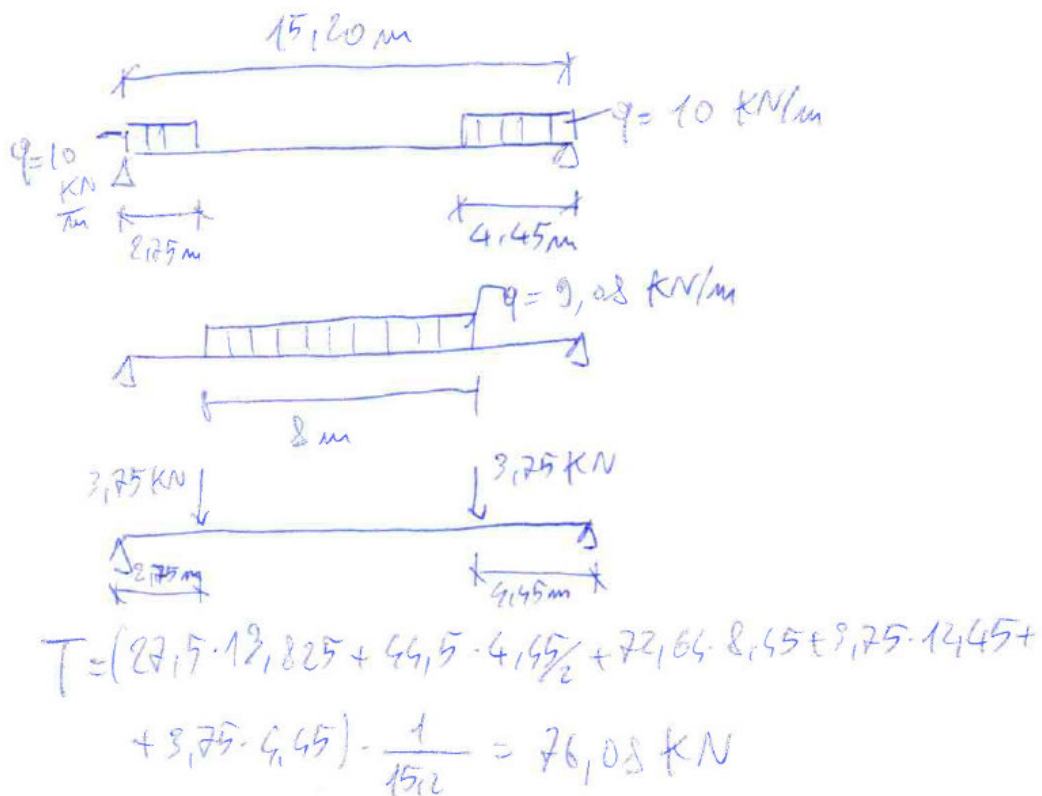 15,20 m
q=10 KN/m
q= 10 KN/m
2,75m
4.45m
q= 9,08 KN/m
8 m
3,75KN
3,75KN
2,75m
4,45m
T=(27,5·13,825+44,5·4,45/2+72,64·8,45+3,75·12,45+
+3,75·4,45)·1/15,2 = 76,08 KN